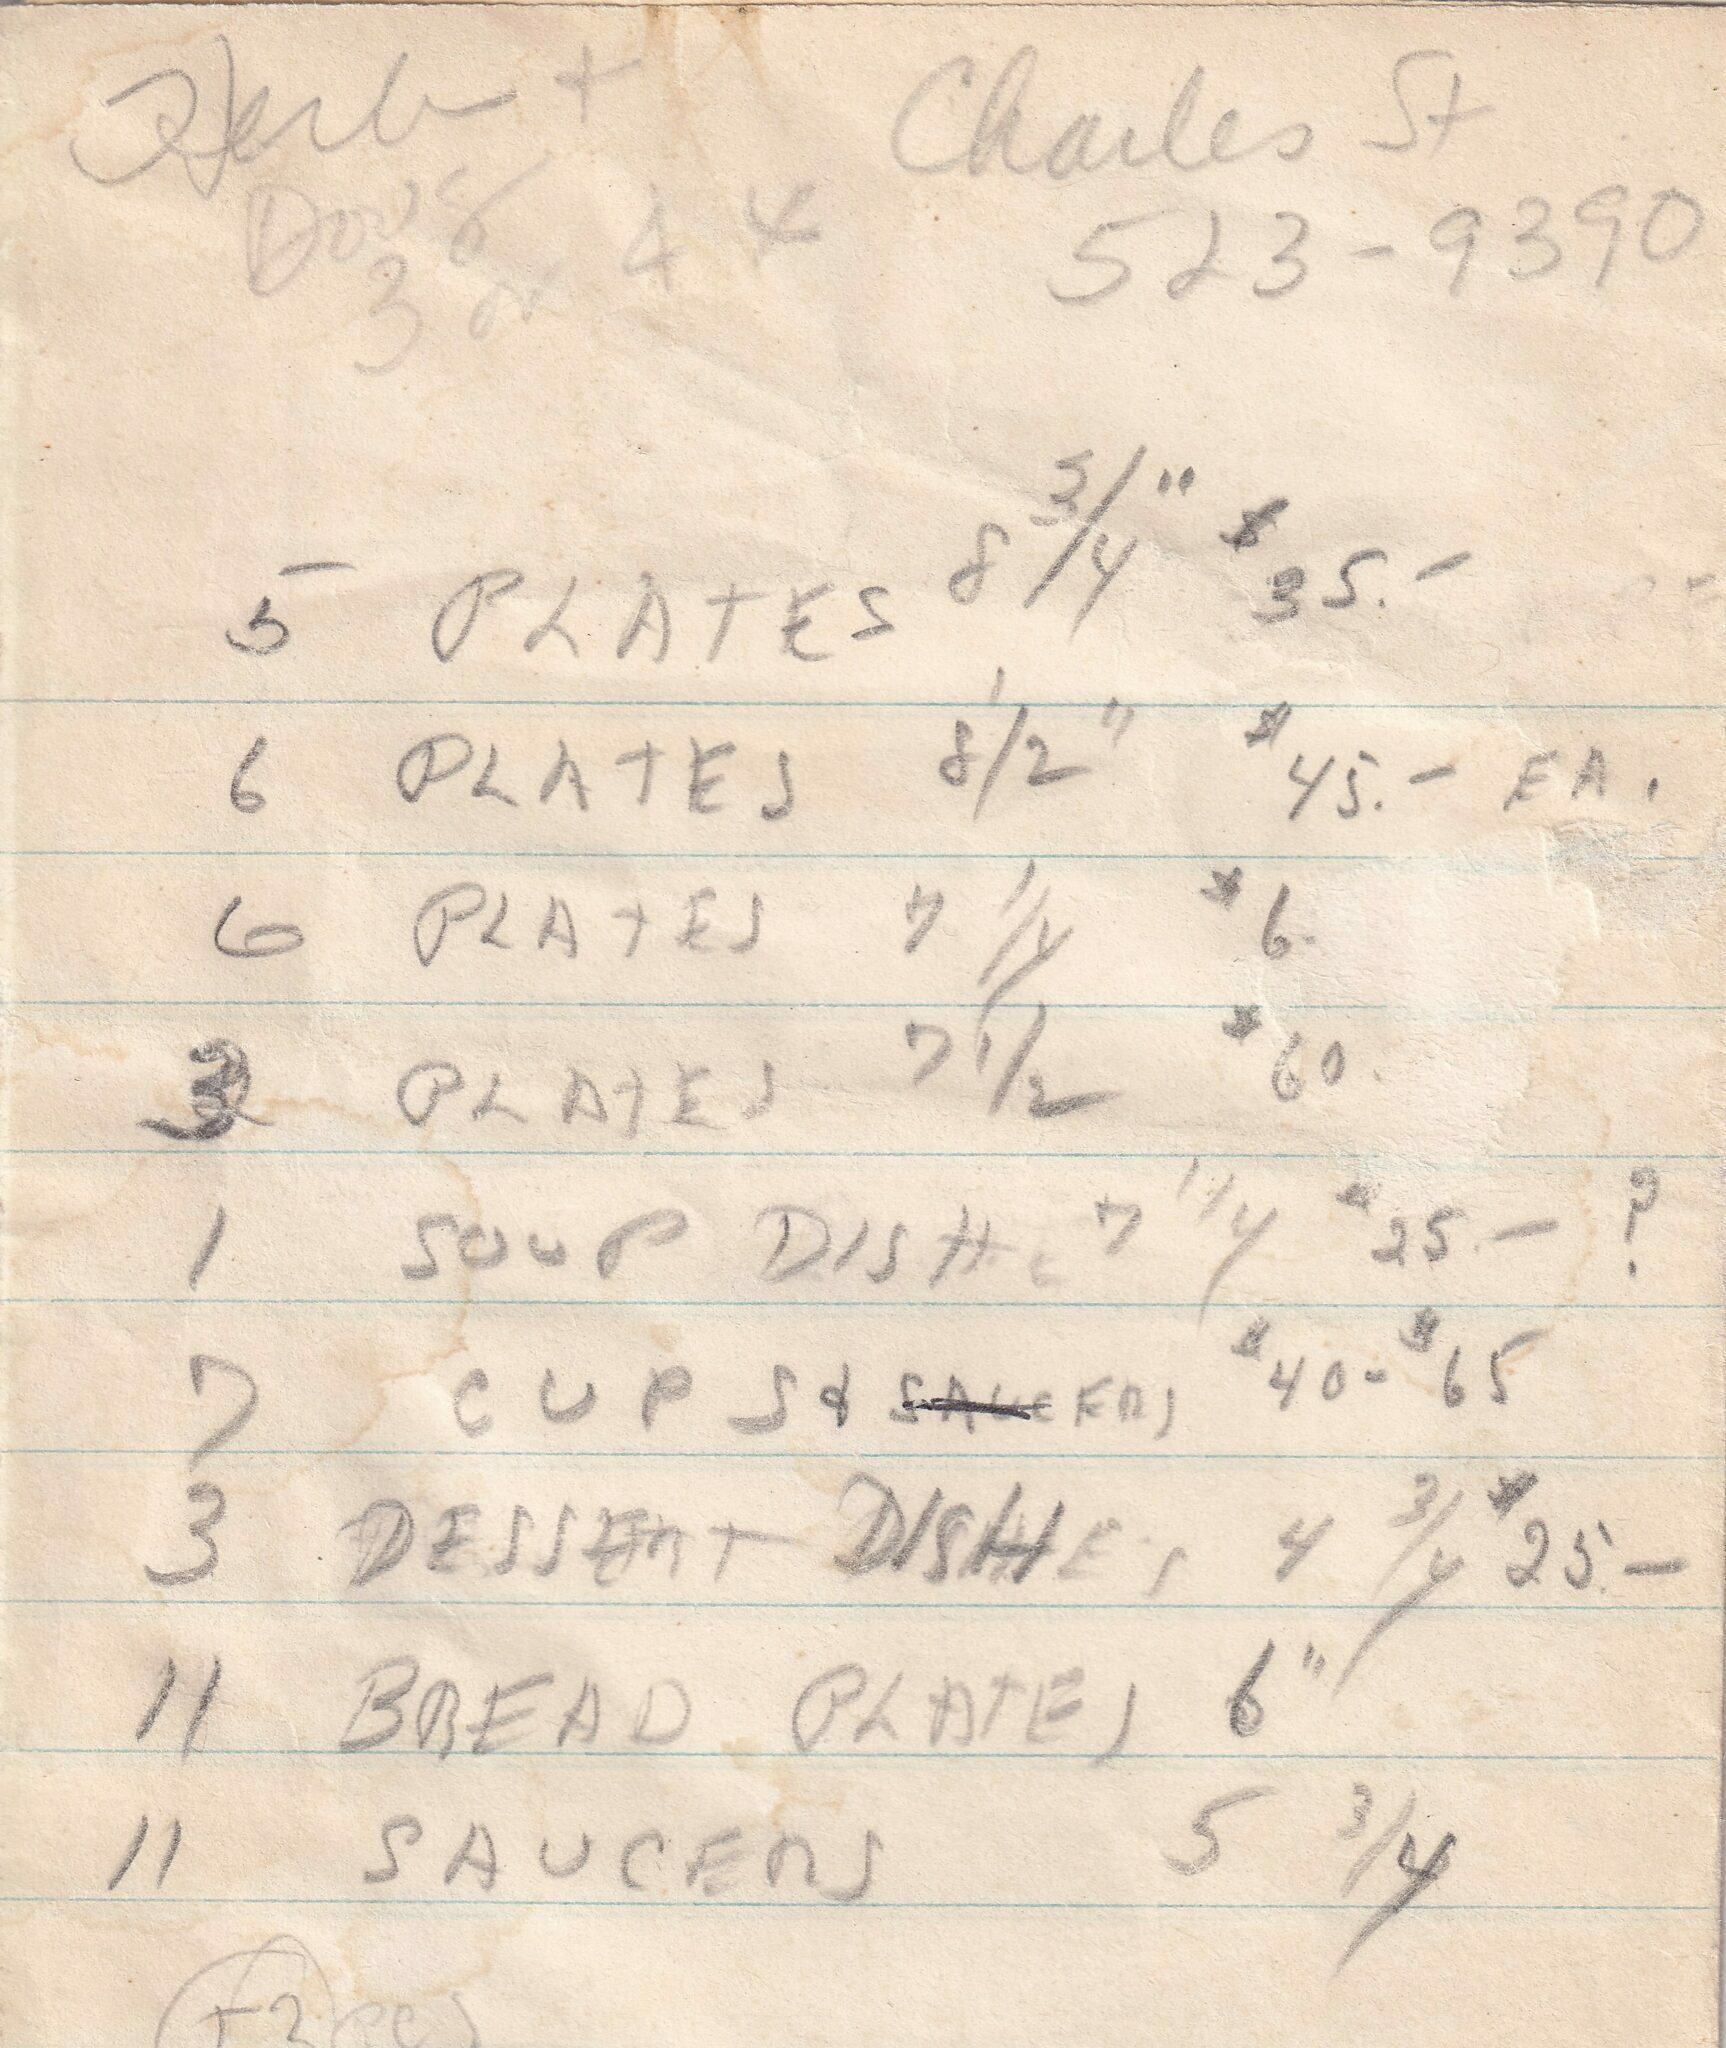 Herb + Charles St
Doug 4 4 523-9390
3 or
5 PLATES 8 3/4" $35.-
6 PLATES 8 1/2" $45.- EA.
6 PLATES 7 1/4 $6.
3 PLATES 7 1/2 $60.
1 SOUP DISH 7 1/4 $25.- ?
7 CUPS & SAUCERS $40-$65
3 DESSERT DISHES 4 3/4 $25.-
11 BREAD PLATES 6"
11 SAUCERS 5 3/4
52 pcs